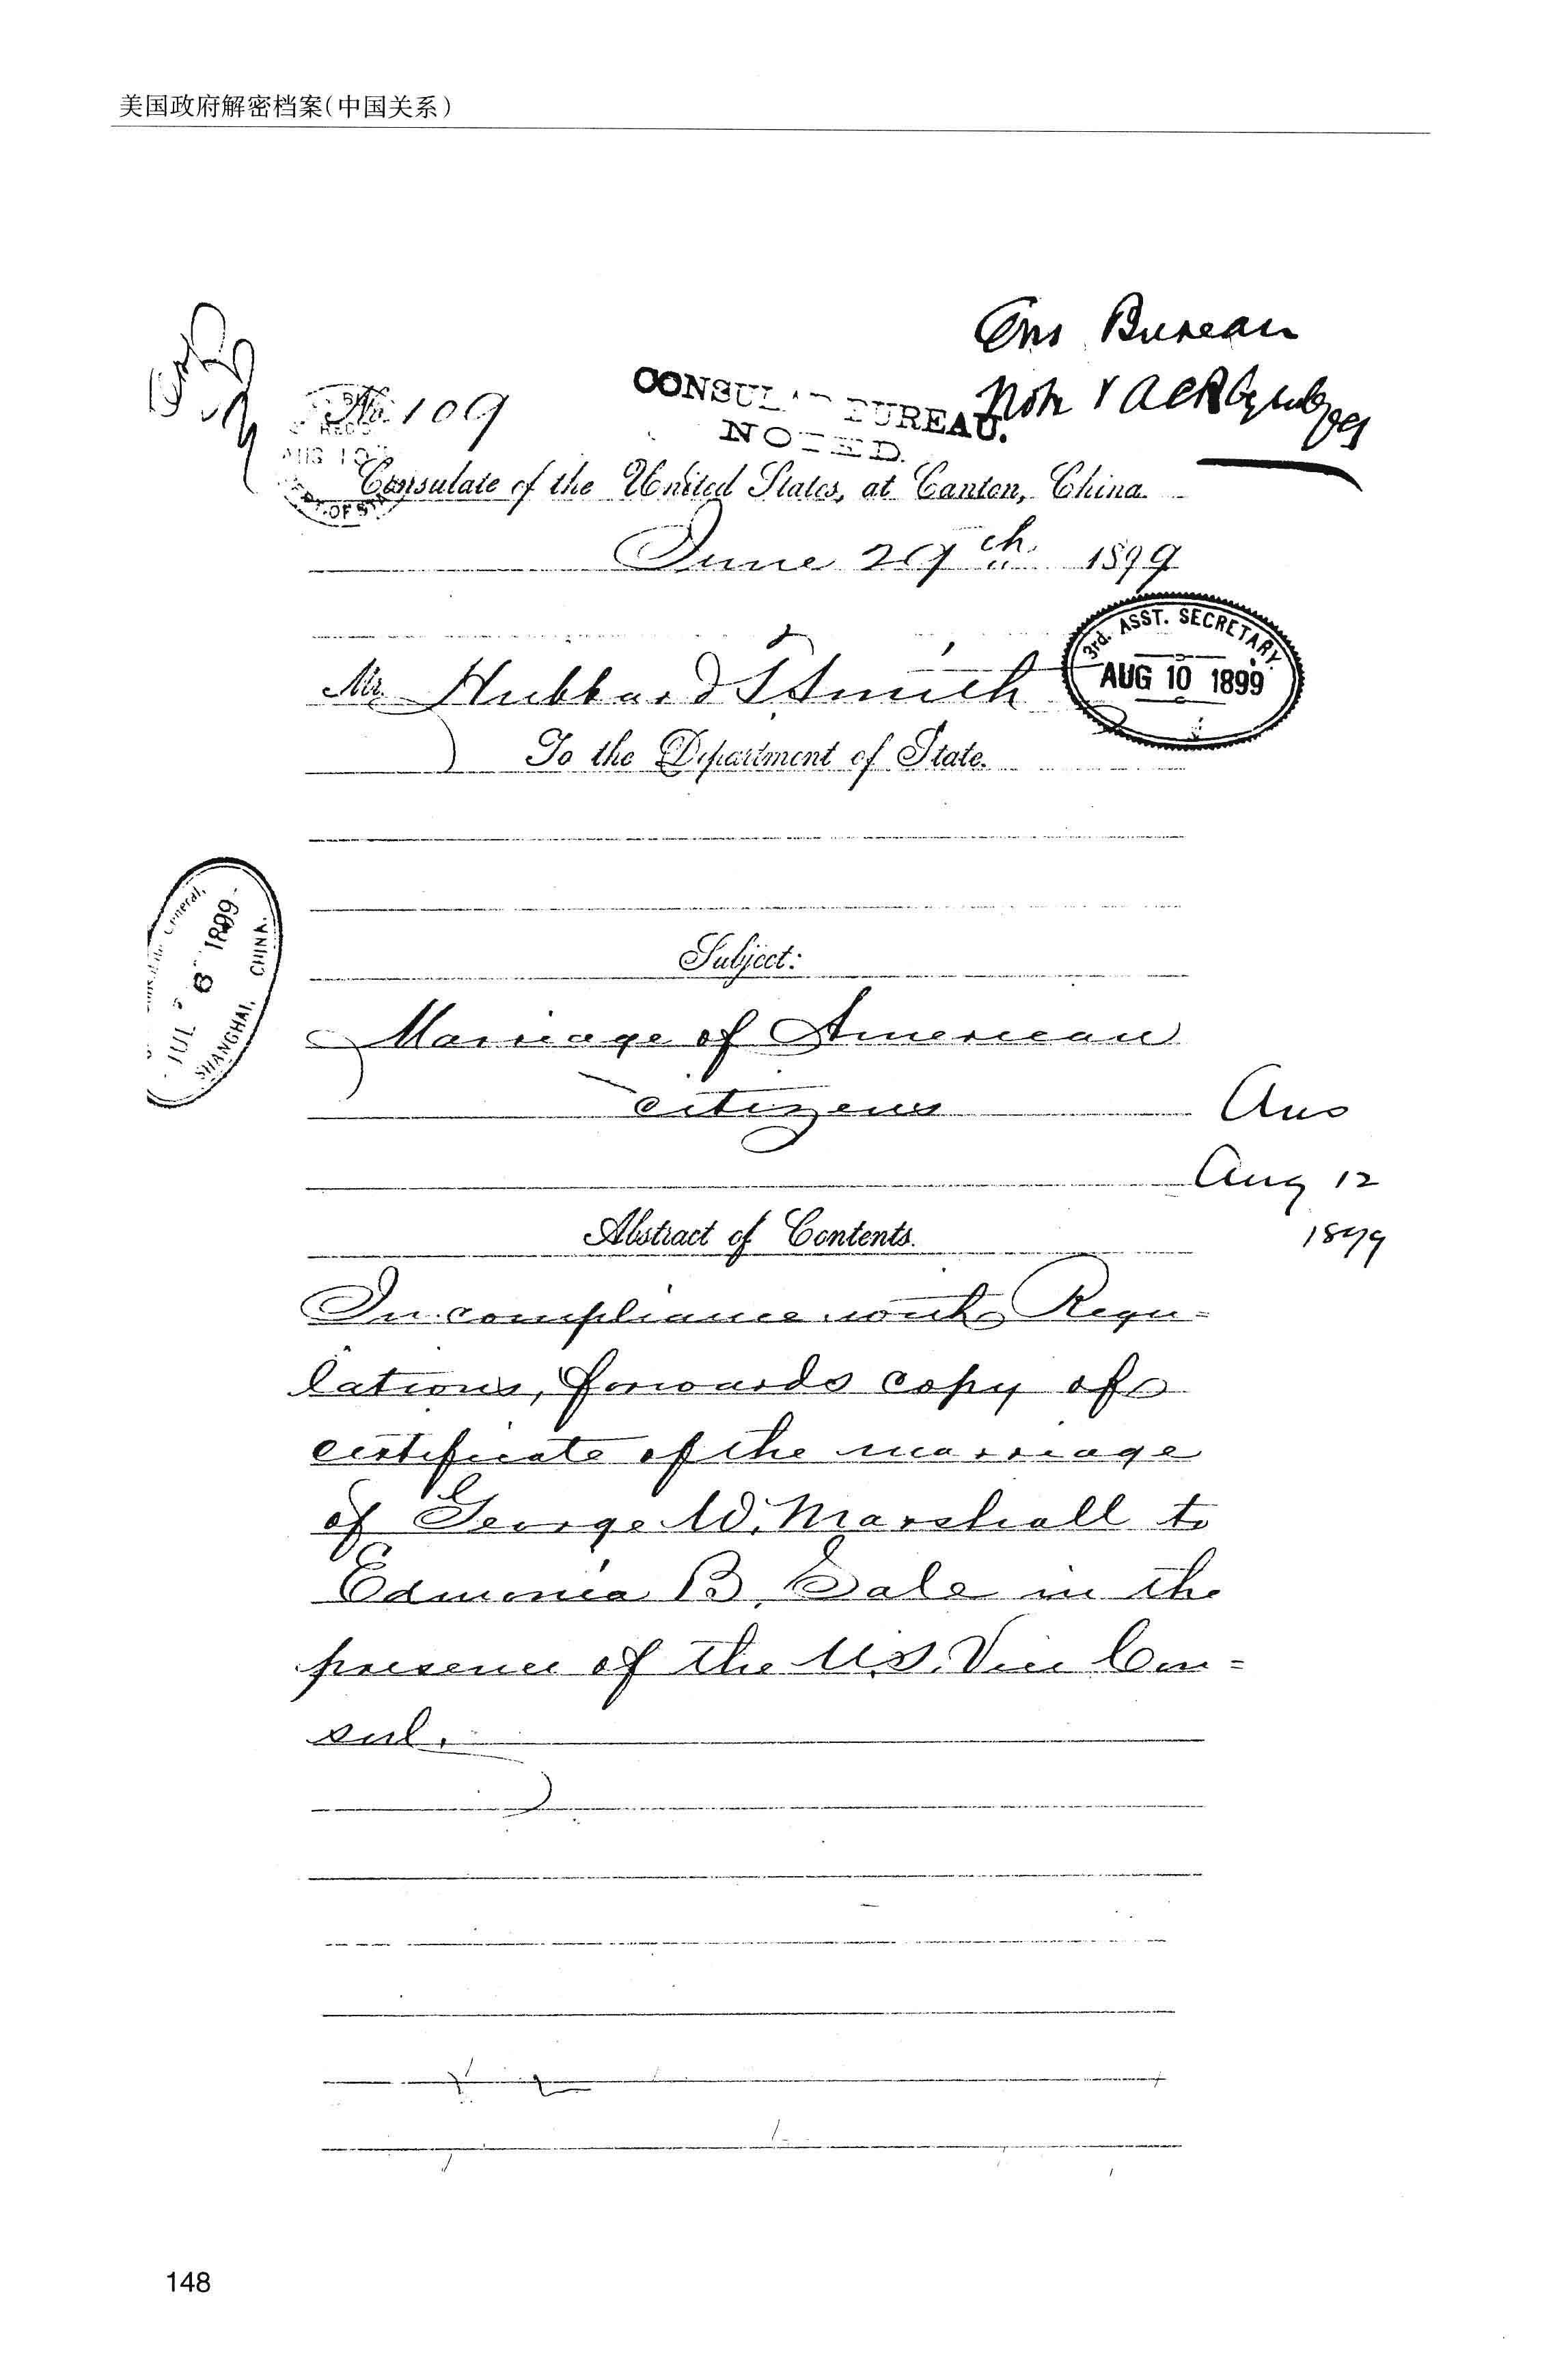 美国政府解密档案(中国关系)
Cons Bureau
Note & ack by
CONSULAR BUREAU.
NOTED.
No. 109
Consulate of the United States, at Canton, China.
June 29th 1899
3rd. ASST. SECRETARY.
AUG 10 1899
Mr. Hubbard T. Smith
To the Department of State.
General,
JUL 6 1899
SHANGHAI, CHINA.
Subject:
Marriage of American
citizens
Ans
Aug 12
1899
Abstract of Contents.
In compliance with Regu=
lations, forwards copy of
certificate of the marriage
of George W. Marshall to
Edmonia B. Sale in the
presence of the U.S. Vice Con=
sul.
148